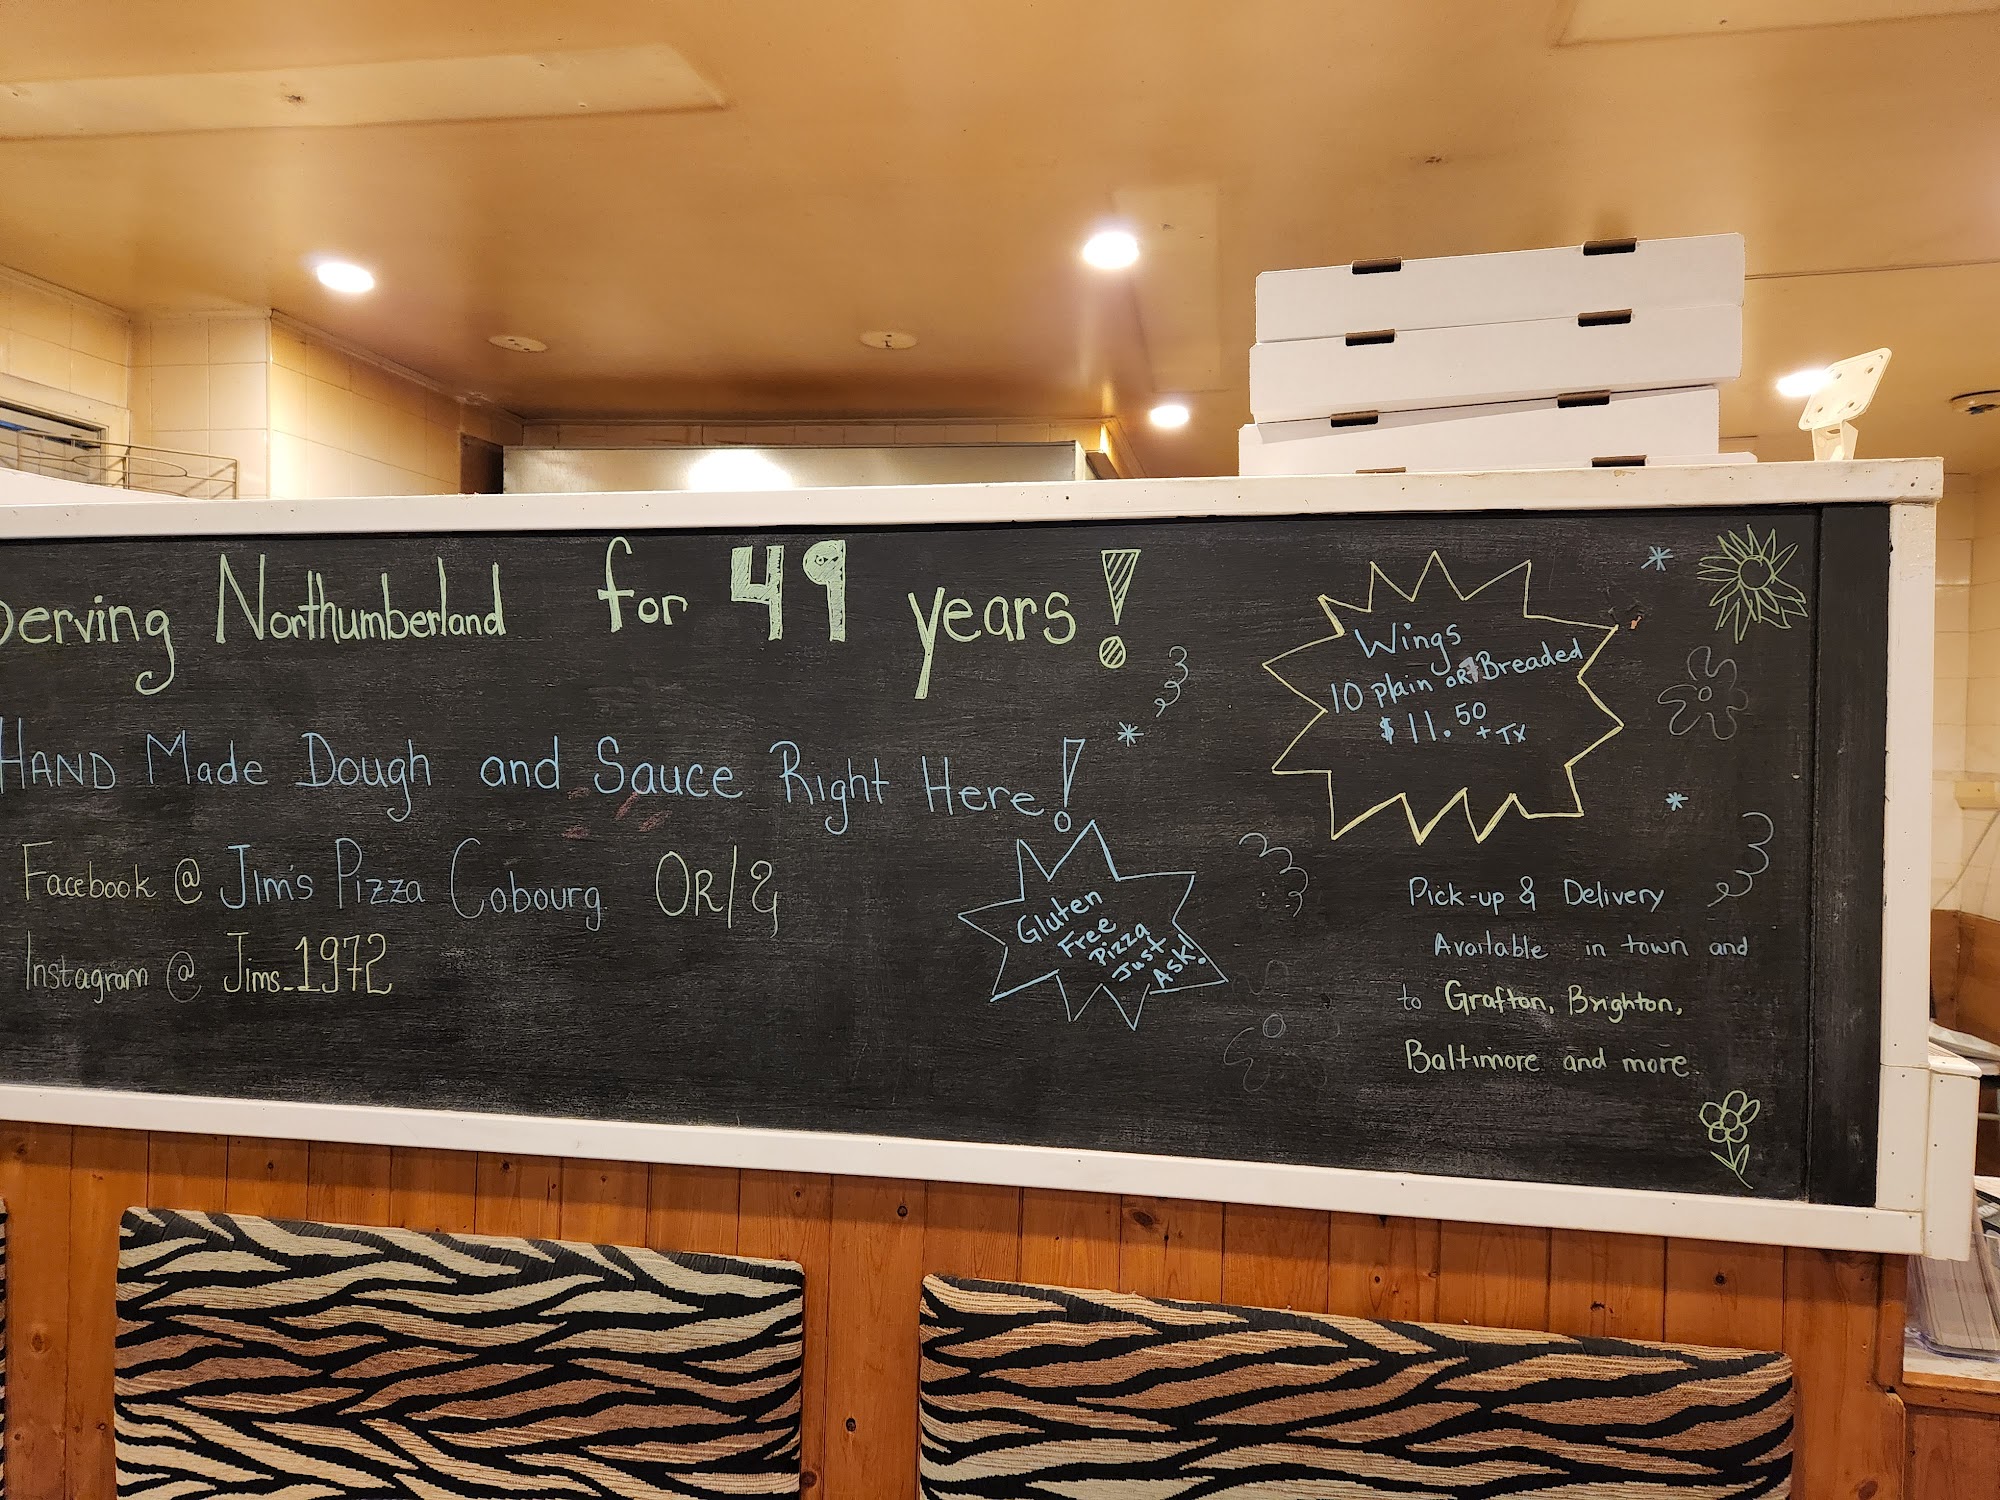 Serving Northumberland for 49 years!
HAND Made Dough and Sauce Right Here!
Facebook @ Jim's Pizza Cobourg. OR/&
Instagram @ Jims_1972
Gluten
Free
Pizza
Just
Ask!
Wings
10 plain OR Breaded
$11.50 + TX
Pick-up & Delivery
Available in town and
to Grafton, Brighton,
Baltimore and more.